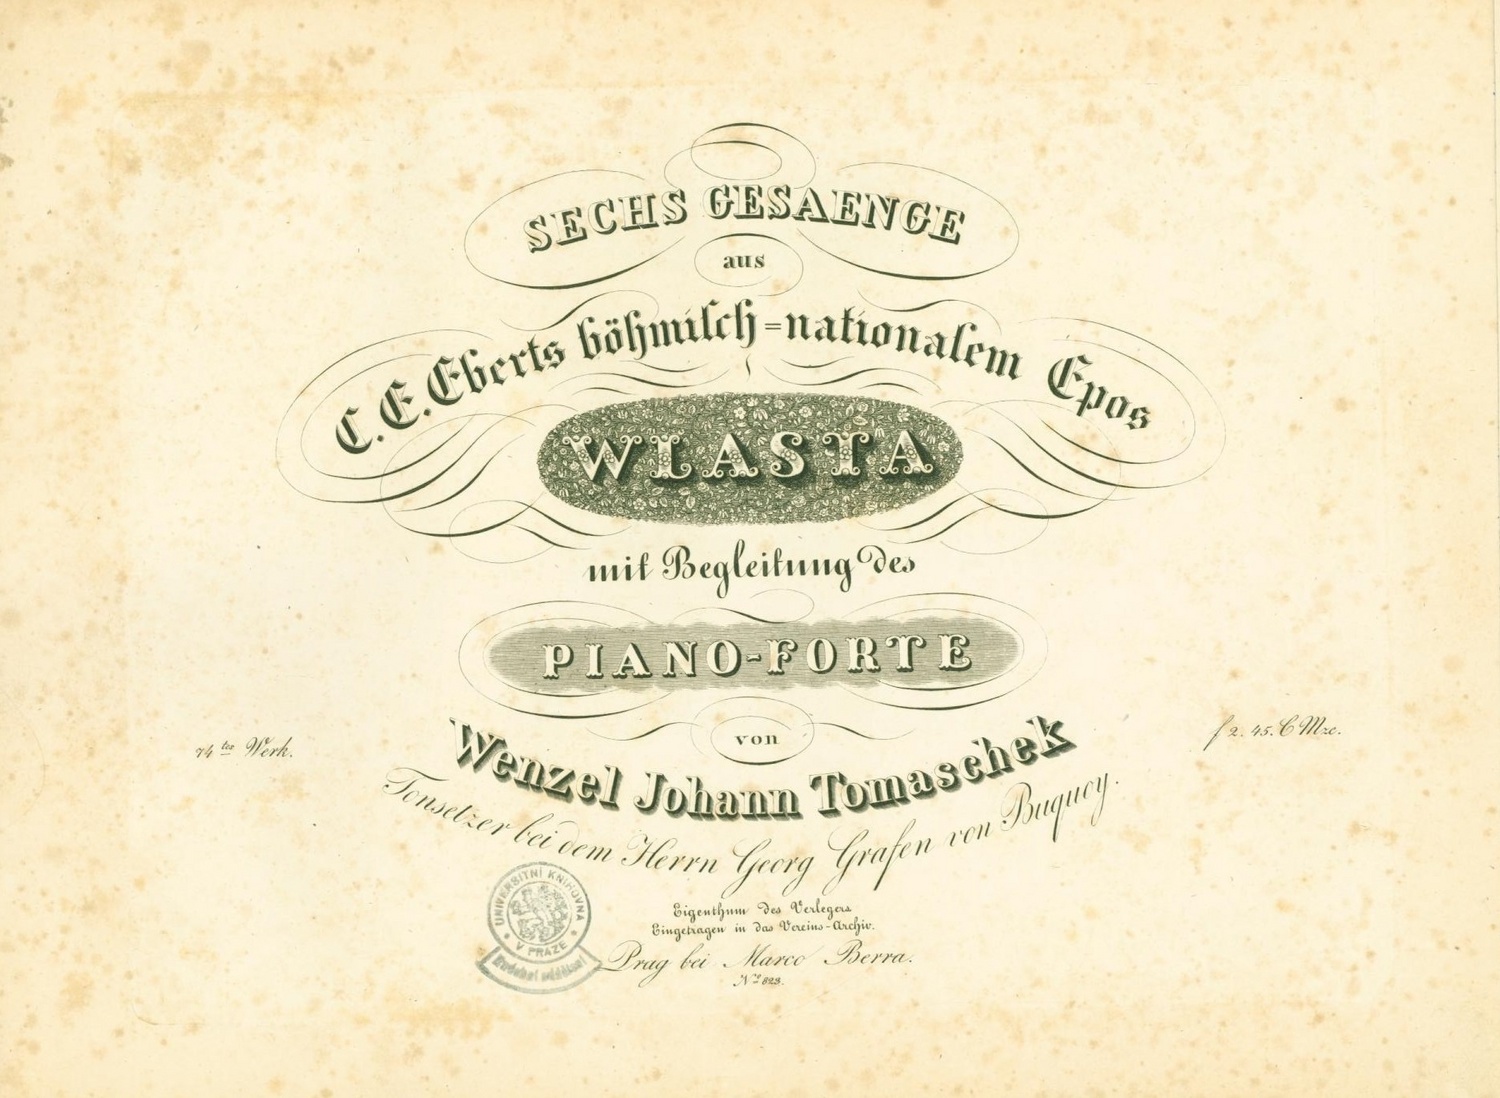 SECHS GESAENGE
aus
C. E. Eberts böhmisch=nationalem Epos
WLASTA
mit Begleitung des
PIANO-FORTE
von
74tes Werk.
f 2. 45. C Mze.
Wenzel Johann Tomaschek
Tonsetzer bei dem Herrn Georg Grafen von Buquoy.
Eigenthum des Verlegers
Eingetragen in das Vereins-Archiv.
Prag bei Marco Berra.
No 823.
UNIVERSITNÍ KNIHOVNA
V PRAZE
Hudební oddělení